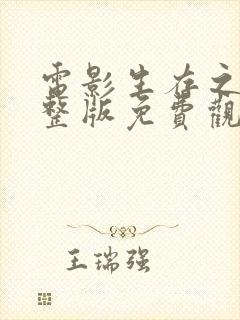 電影生存之
整版免費觀
王瑞强